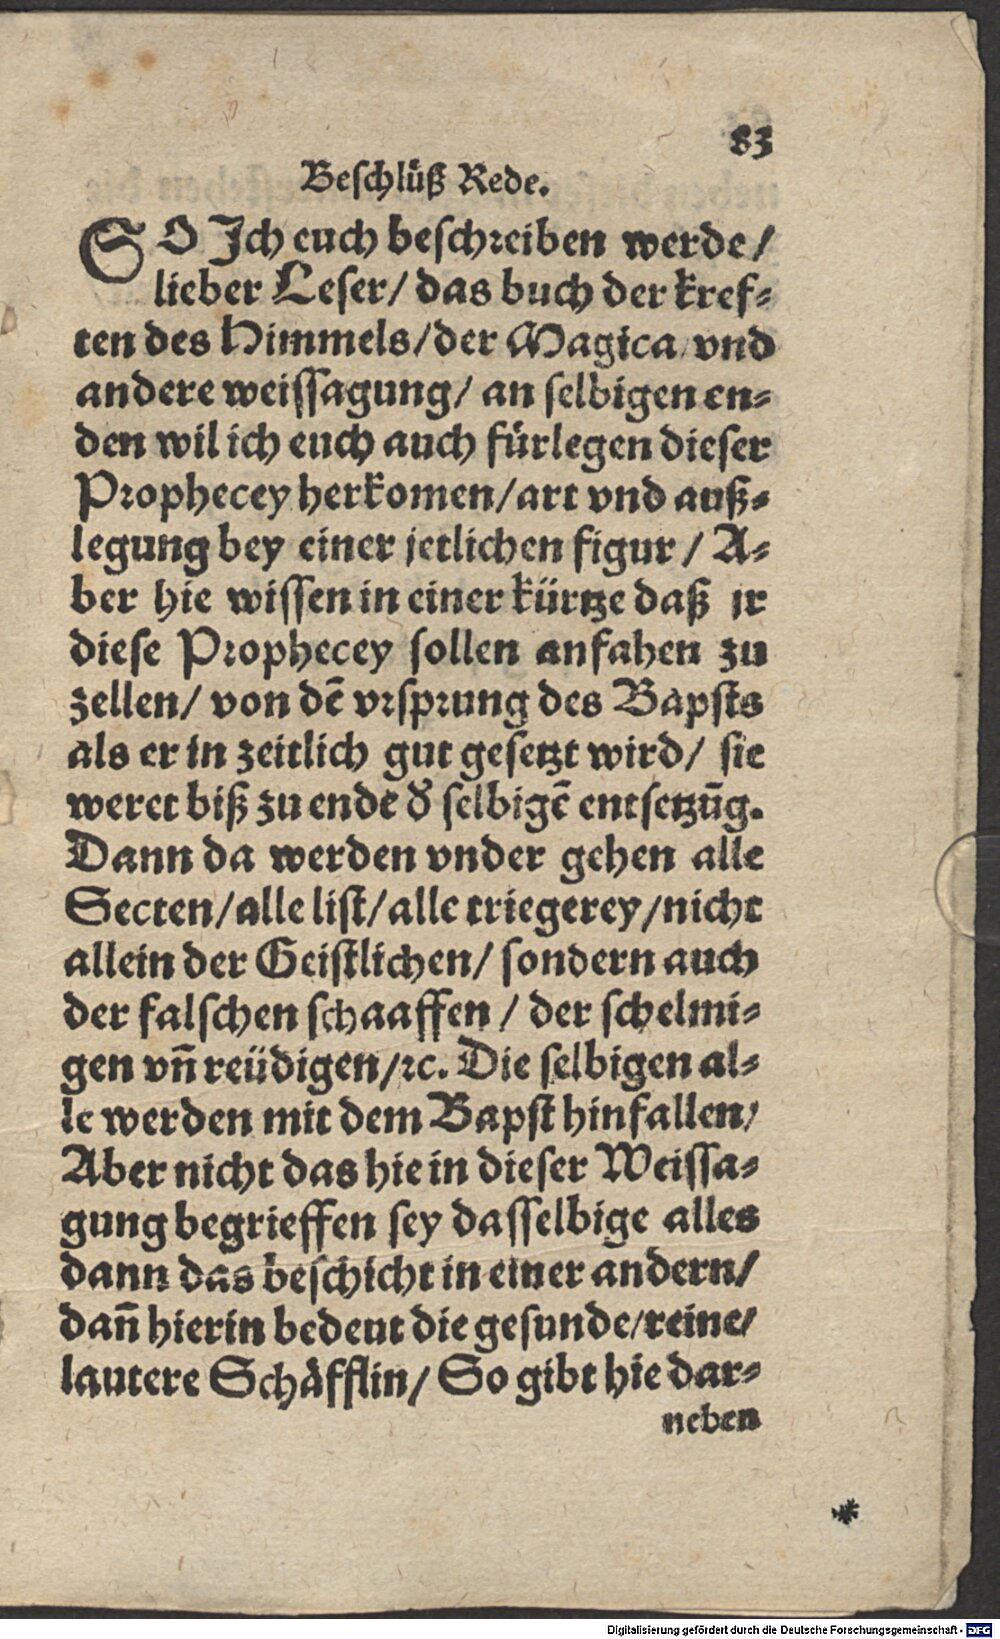 83
Beschlůß Rede.
SO Jch euch beschreiben werde/
lieber Leser/ das buch der kref-
ten des Himmels/der Magica/ vnd
andere weissagung/ an selbigen en-
den wil ich euch auch fürlegen dieser
Prophecey herkomen/art vnd auß-
legung bey einer jetlichen figur / A-
ber hie wissen in einer kürtze daß jr
diese Prophecey sollen anfahen zu
zellen/ von dē vrsprung des Bapsts
als er in zeitlich gut gesetzt wird/ sie
weret biß zu ende dˀ selbigē entsetzūg.
Dann da werden vnder gehen alle
Secten/alle list/alle triegerey/nicht
allein der Geistlichen/ sondern auch
der falschen schaaffen / der schelmi-
gen vn̄ reüdigen/ꝛc. Die selbigen al-
le werden mit dem Bapst hinfallen/
Aber nicht das hie in dieser Weissa-
gung begrieffen sey dasselbige alles
dann das beschicht in einer andern/
dan̄ hierin bedeut die gesunde/reine/
lautere Schäfflin/ So gibt hie dar-
neben
*
Digitalisierung gefördert durch die Deutsche Forschungsgemeinschaft - DFG